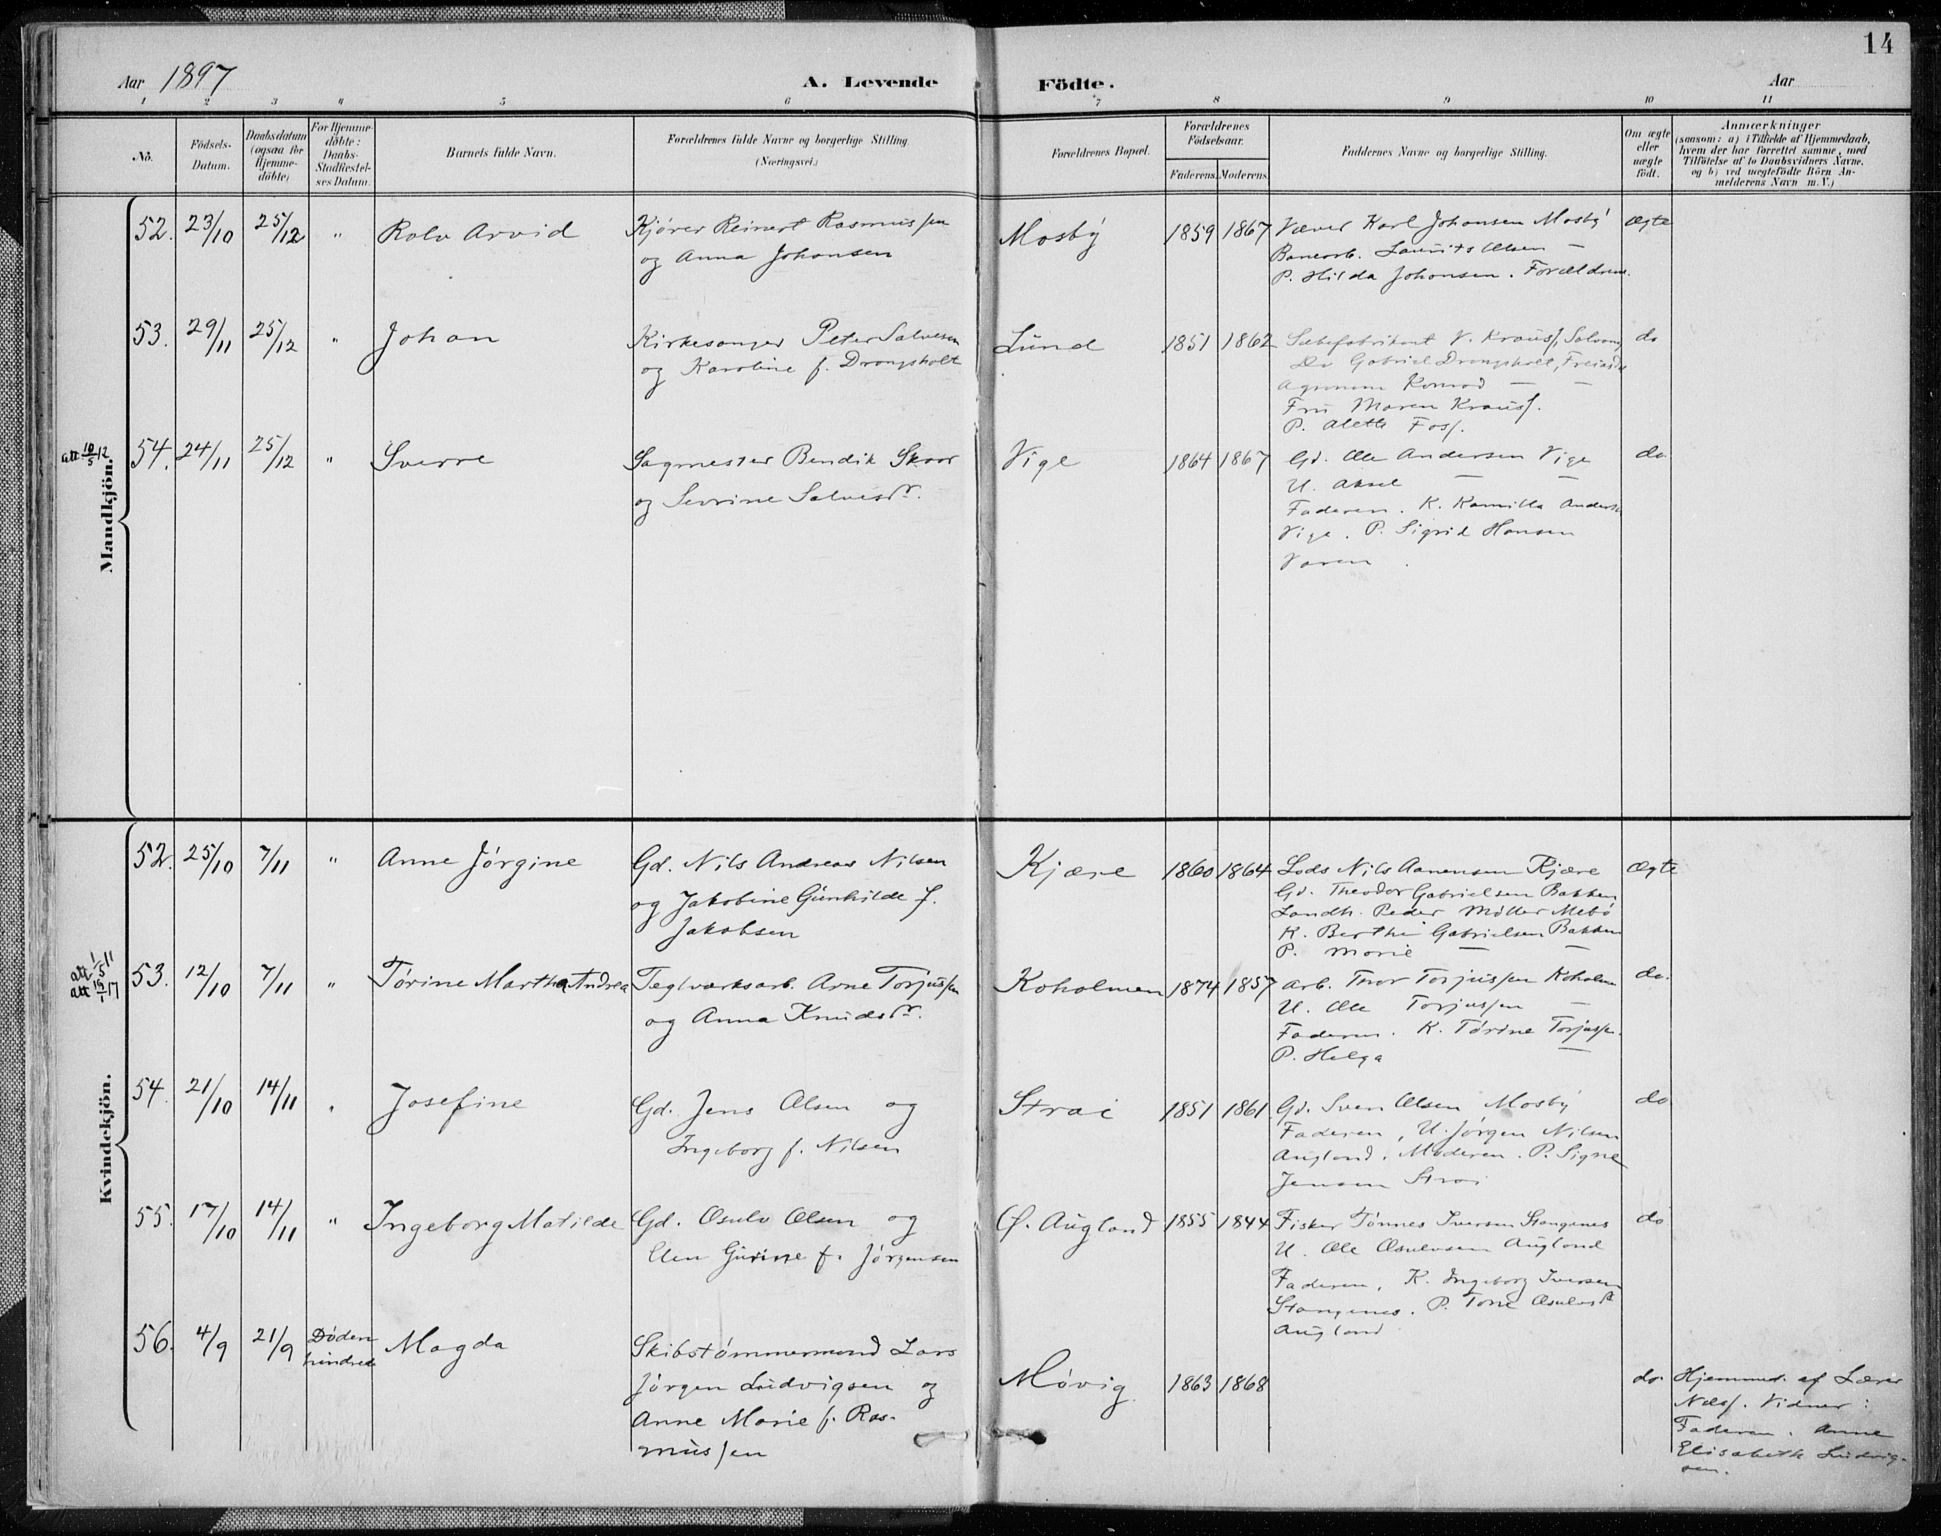 14
Aar 1897 A. Levende Födte. Aar
1 2 3 4 5 6 7 8 9 10 11
No.
Födsels-
Datum.
Daabsdatum
(ogsaa for
Hjemme-
döbte)
For Hjemme-
döbte:
Daabs-
Stadfæstel-
ses Datum.
Barnets fulde Navn.
Forældrenes fulde Navne og borgerlige Stilling
(Næringsvei.)
Forældrenes Bopæl.
Forældrenes
Födselsaar.
Faderens. Moderens.
Faddernes Navne og borgerlige Stilling.
Om ægte
eller
uægte
født.
Anmærkninger
(saasom: a) i Tilfælde af Hjemmedaab,
hvem der har forrettet samme, med
Tilföielse af to Daabsvidners Navne,
og b) ved uægtefödte Börn An-
melderens Navn m. V.)
Mandkjön.
52. 23/10 25/12 " Rolv Arvid
Kjører Reinert Rasmussen
og Anna Johansen
Mosby 1859 1867
Væver Karl Johansen Mosby
Banearb. Laurits Olsen —
P. Hilda Johansen. Forældrene.
Ægte
53. 29/11 25/12 " Johan
Kirkesanger Peter Salvesen
og Karoline f. Drongsholt
Lund 1851 1862
Sæbefabrikant V. Krauss,
Do Gabriel Drongsholt,
Agronom Konrad — —
Fru Maren Krauss.
P. Alette Foss.
do
att 10/5 12
54. 24/11 25/12 " Sverre
Sagmester Bendik Skaar
og Sevrine Salvesdr.
Vige 1864 1867
Gd. Ole Andersen Vige
U. Aksel — —
Faderen. K. Kamilla Anders.
Vige. P. Sigrid Hansen
Voren.
do
Kvindekjön.
52. 25/10 7/11 " Anne Jørgine
Gd. Nils Andreas Nilsen
og Jakobine Gunhilde f.
Jakobsen
Kjære 1860 1864
Lods Nils Aanensen Kjære
Gd. Theodor Gabrielsen Bakken
Landh. Peder Møller Mebø
K. Berthe Gabrielsen Bakken
P. Marie — —
Ægte
att 1/5 11
att 16/1 17
53. 12/10 7/11 " Tørine Martha Andrea
Teglværksarb. Arne Torjussen
og Anna Knudsdr.
Koholmen 1874 1857
Arb. Thor Torjussen Koholm
U. Ole Torjussen —
Faderen. K. Tørine Torjussen.
P. Helga —
do.
54. 21/10 14/11 " Josefine
Gd. Jens Olsen og
Ingeborg f. Nilsen
Strai 1851 1861
Gd. Sven Olsen Mosby
Faderen, U. Jørgen Nilsen
Augland. Moderen. P. Signe
Jensen Strai
do
55. 17/10 14/11 " Ingeborg Matilde
Gd. Osulv Olsen og
Elen Gurine f. Jørgensen
Ø. Augland 1855 1844
Fisker Tønnes Iversen Stangenes
U. Ole Osulvsen Augland
Faderen, K. Ingeborg Iversen
Stangenes. P. Tone Osulvsdt
Augland
do
56. 4/9 21/9 Døden
hindrede
Magda
Skibstømmermand Lars
Jørgen Ludvigsen og
Anne Marie f. Ras-
mussen
Møvig 1863 1868
do.
Hjemmed. af Lærer
Næss. Vidner:
Faderen. Anne
Elisabeth Ludvig-
sen.